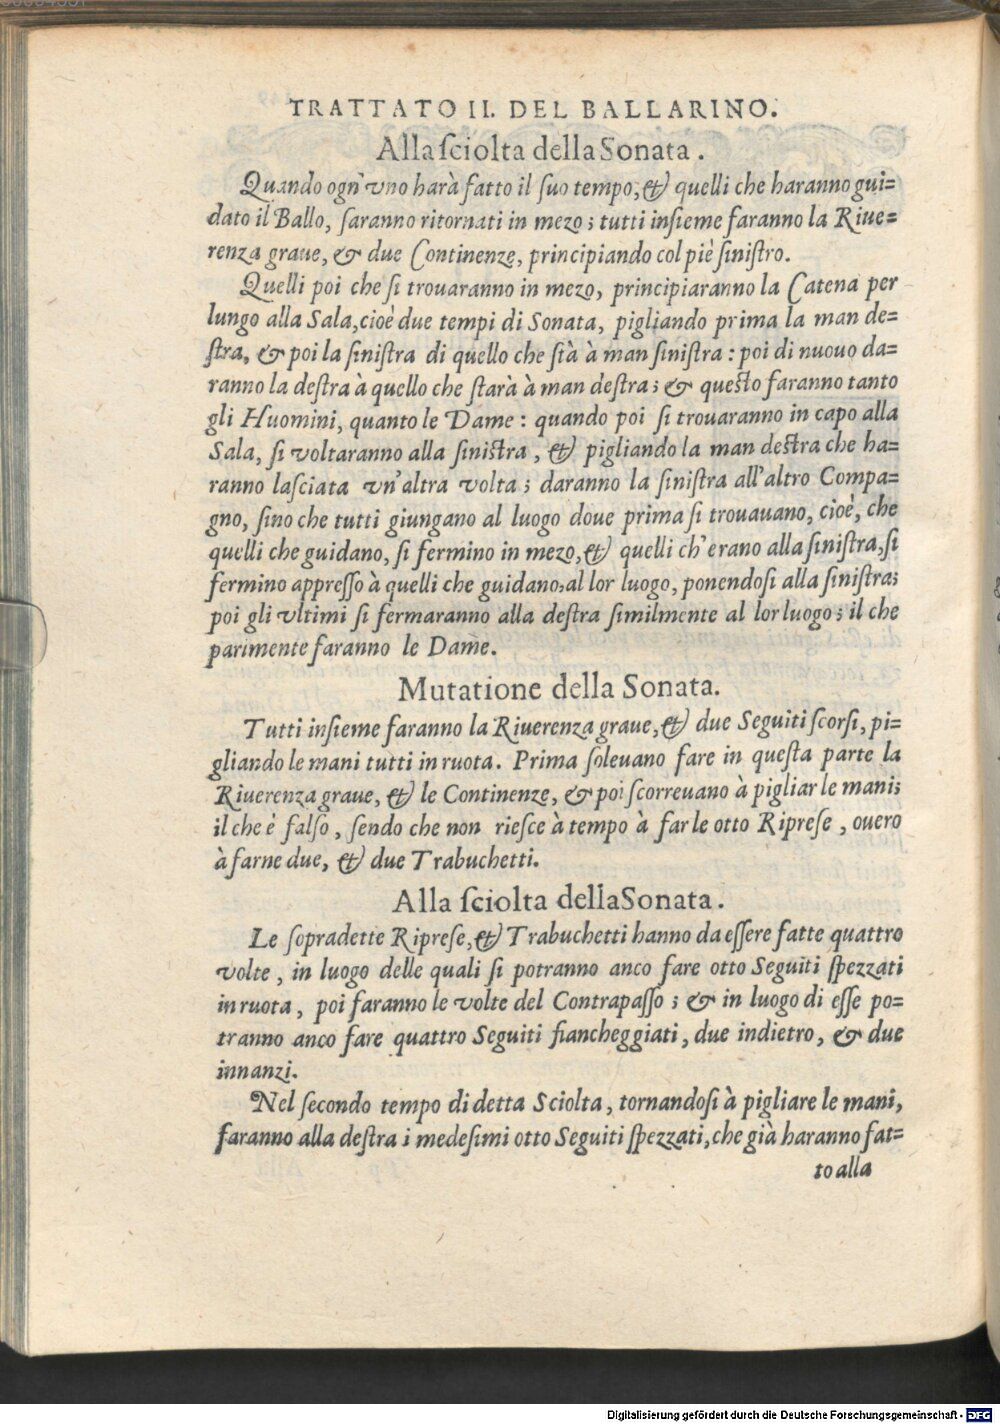 TRATTATO II. DEL BALLARINO.
Alla ſciolta della Sonata.
Quando ogn'vno harà fatto il ſuo tempo, & quelli che haranno gui=
dato il Ballo, ſaranno ritornati in mezo; tutti inſieme faranno la Riue=
renza graue, & due Continenze, principiando col piè ſiniſtro.
Quelli poi che ſi trouaranno in mezo, principiaranno la Catena per
lungo alla Sala, cioè due tempi di Sonata, pigliando prima la man de=
ſtra, & poi la ſiniſtra di quello che ſtà à man ſiniſtra: poi di nuouo da=
ranno la deſtra à quello che ſtarà à man deſtra; & queſto faranno tanto
gli Huomini, quanto le Dame: quando poi ſi trouaranno in capo alla
Sala, ſi voltaranno alla ſiniſtra, & pigliando la man deſtra che ha=
ranno laſciata vn'altra volta; daranno la ſiniſtra all'altro Compa=
gno, ſino che tutti giungano al luogo doue prima ſi trouauano, cioè, che
quelli che guidano, ſi fermino in mezo, & quelli ch'erano alla ſiniſtra, ſi
fermino appreſſo à quelli che guidano, al lor luogo, ponendoſi alla ſiniſtra;
poi gli vltimi ſi fermaranno alla deſtra ſimilmente al lor luogo; il che
parimente faranno le Dame.
Mutatione della Sonata.
Tutti inſieme faranno la Riuerenza graue, & due Seguiti ſcorſi, pi=
gliando le mani tutti in ruota. Prima ſoleuano fare in queſta parte la
Riuerenza graue, & le Continenze, & poi ſcorreuano à pigliar le mani;
il che è falſo, ſendo che non rieſce à tempo à far le otto Ripreſe, ouero
à farne due, & due Trabuchetti.
Alla ſciolta della Sonata.
Le ſopradette Ripreſe, & Trabuchetti hanno da eſſere fatte quattro
volte, in luogo delle quali ſi potranno anco fare otto Seguiti ſpezzati
in ruota, poi faranno le volte del Contrapaſſo; & in luogo di eſſe po=
tranno anco fare quattro Seguiti fiancheggiati, due indietro, & due
innanzi.
Nel ſecondo tempo di detta Sciolta, tornandoſi à pigliare le mani,
faranno alla deſtra i medeſimi otto Seguiti ſpezzati, che già haranno fat=
to alla
Digitalisierung gefördert durch die Deutsche Forschungsgemeinschaft - DFG